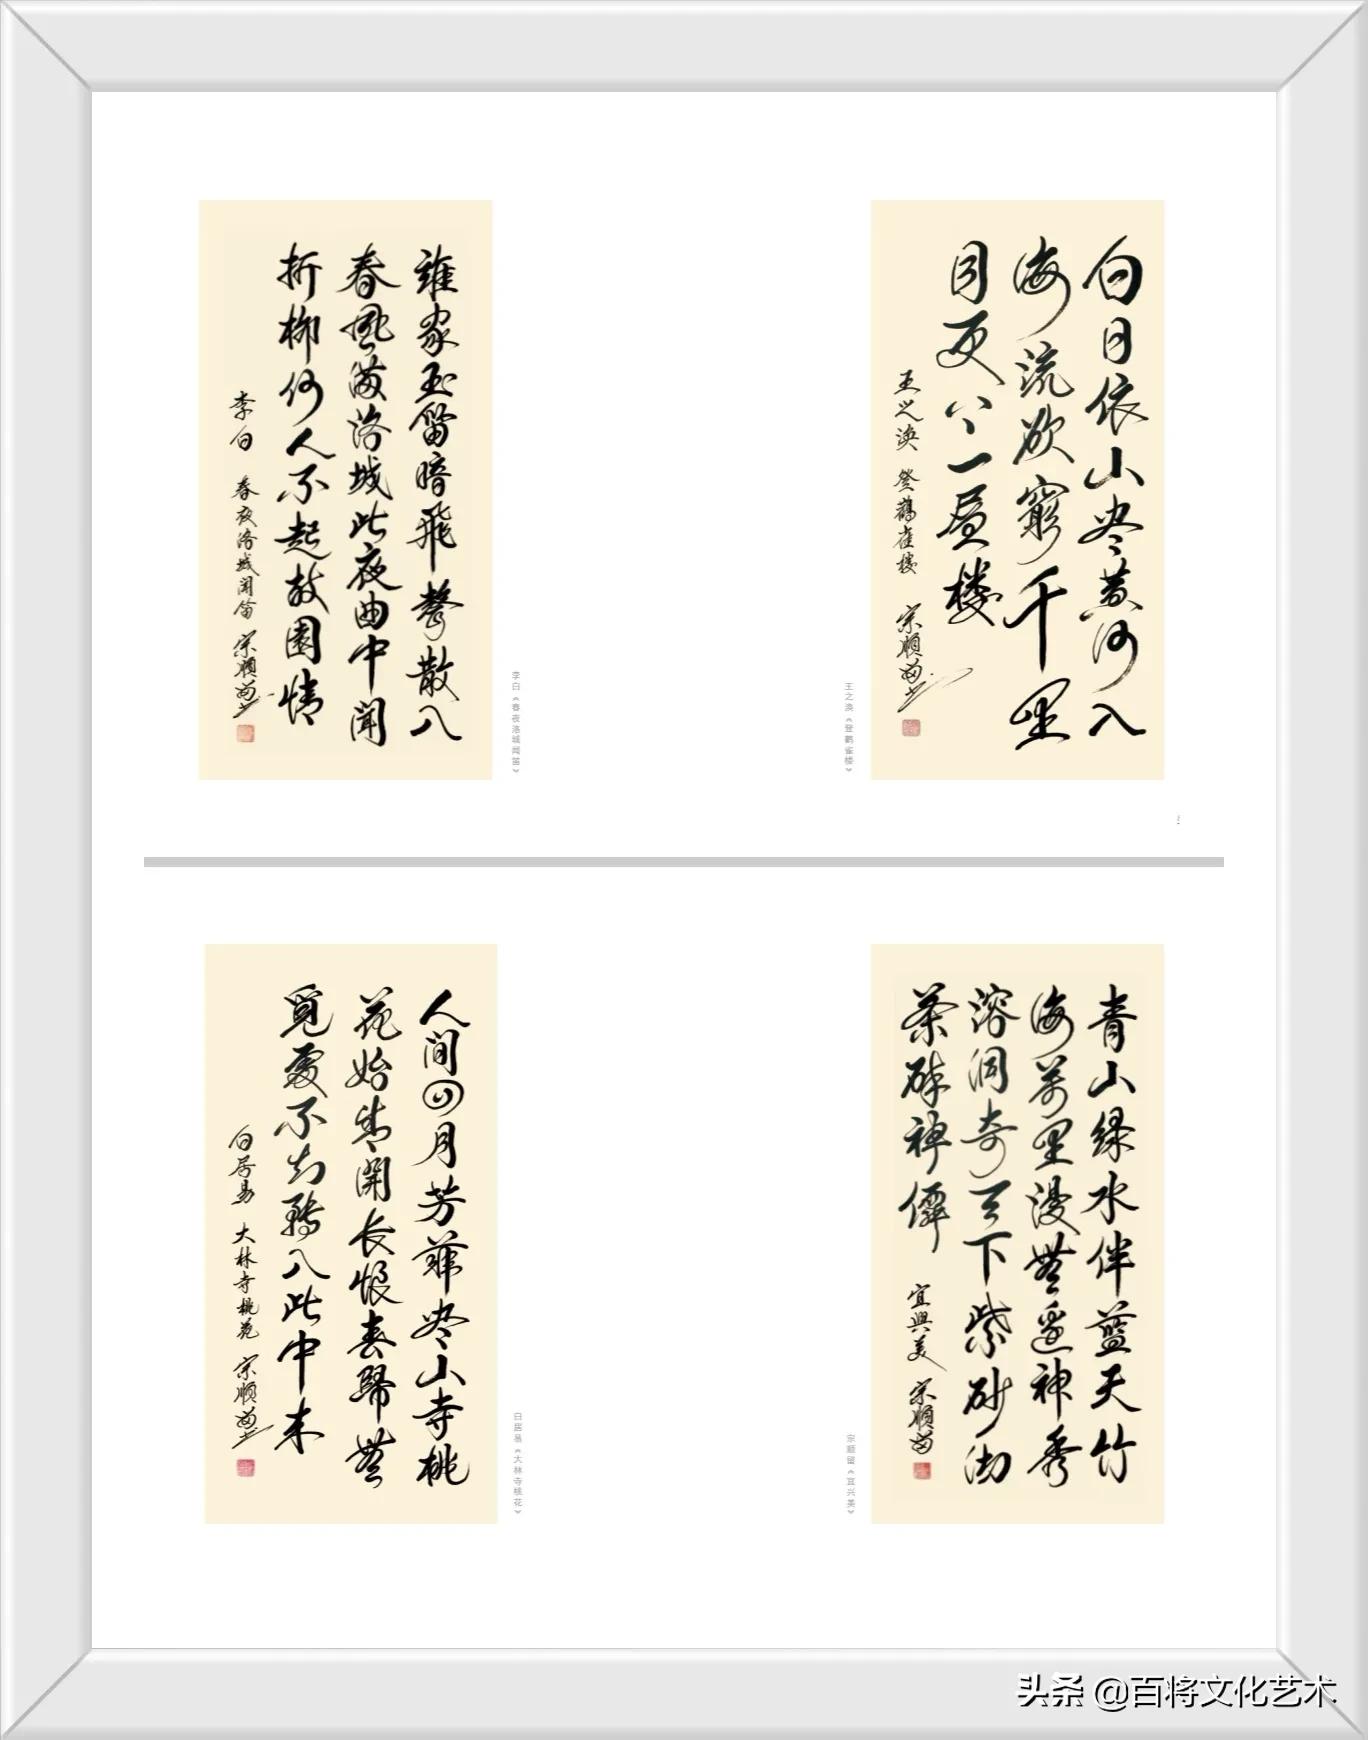 白日依山尽黄河入
海流欲窮千里
目更上一层楼
王之涣 登鹤雀楼 宗順留书
王之涣《登鹤雀楼》
誰家玉笛暗飛聲散入
春風滿洛城此夜曲中聞
折柳何人不起故園情
李白 春夜洛城聞笛 宗順留书
李白《春夜洛城闻笛》
青山绿水伴藍天竹
海萬里漫無邊神秀
溶洞奇天下紫砂陶
茶酔神僊
宜興美 宗順留
宗顺留《宜兴美》
人间四月芳菲尽山寺桃
花始盛開长恨春歸無
覓處不知轉入此中来
白居易 大林寺桃花 宗順留书
白居易《大林寺桃花》
头条 @百将文化艺术